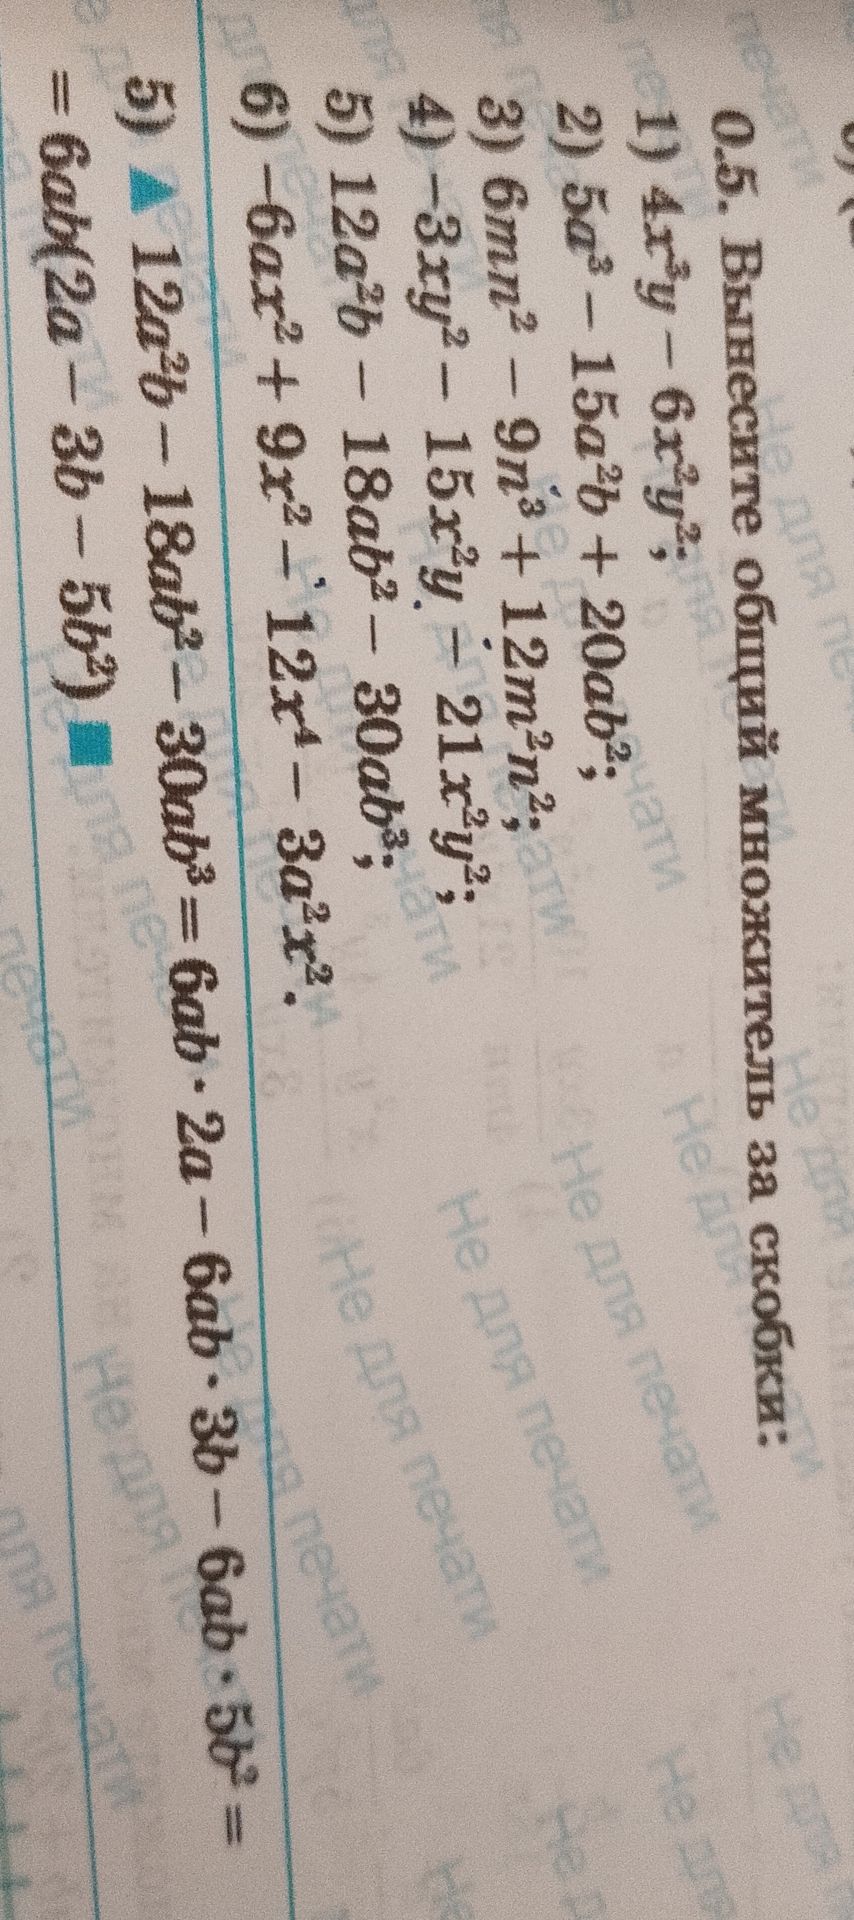 0.5. Вынесите общий множитель за скобки:
1) 4x³y – 6x²y²;
2) 5a³ – 15a²b + 20ab²;
3) 6mn² – 9n³ + 12m²n²;
4) –3xy² – 15x²y – 21x²y²;
5) 12a²b – 18ab² – 30ab³;
6) –6ax² + 9x² – 12x⁴ – 3a²x².
5) ▲ 12a²b – 18ab² – 30ab³ = 6ab · 2a – 6ab · 3b – 6ab · 5b² =
= 6ab(2a – 3b – 5b²) ■
Не для печати